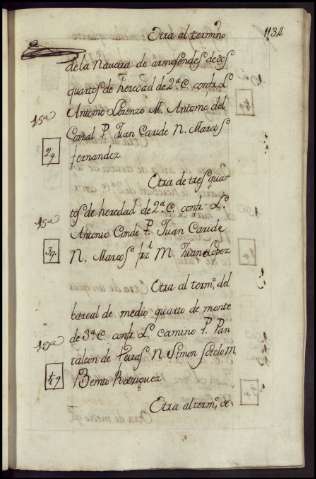 Otra al termino
1134
de la Navaira de armosendes de dos
quartos de heredad de 2ª C. confr. L.
15ª
Antonio Lorenzo M. Antonio del
Canal P. Juan Caude N. Marcos
2q.
fernandez
Otra de tres quar
tos de heredad de 2ª C. confr. L.
15ª
Antonio Conde P. Juan Caude
3q.
N. Marcos M. Juan Lopez
Otra al term.º del
boreal de medio quarto de monte
de 3ª C. confr. L. camino P. Pan
taleon de N. Simon M
Benito Rodriguez
Otra al term.º de